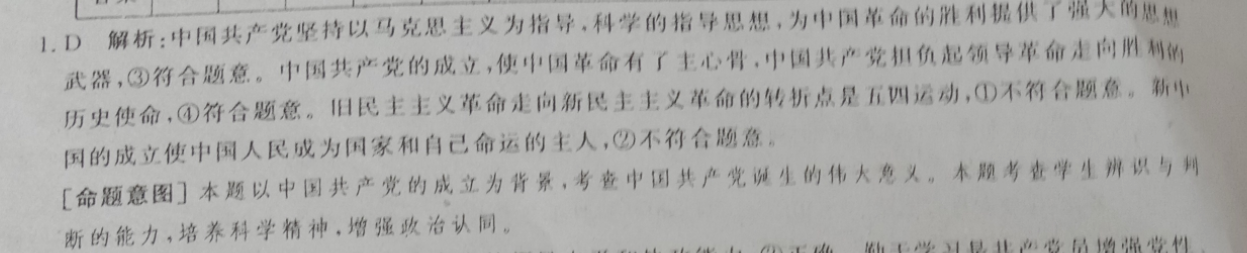 1. D 解析:中国共产党坚持以马克思主义为指导,科学的指导思想,为中国革命的胜利提供了强大的思想
武器,③符合题意。中国共产党的成立,使中国革命有了主心骨,中国共产党担负起领导革命走向胜利的
历史使命,④符合题意。旧民主主义革命走向新民主主义革命的转折点是五四运动,①不符合题意。新中
国的成立使中国人民成为国家和自己命运的主人,②不符合题意。
[命题意图] 本题以中国共产党的成立为背景,考查中国共产党诞生的伟大意义。本题考查学生辨识与判
断的能力,培养科学精神,增强政治认同。
正确。勤于学习是共产党员增强党性